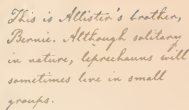 This is Allister's brother,
Bernie. Although solitary
in nature, leprechauns will
sometimes live in small
groups.